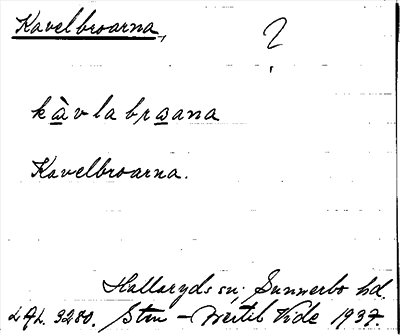 Kavelbroarna, ?
kàvlabraana
Kavelbroarna.
Hallaryds sn; Sunnerbo hd.
LAL. 3280. Stm - Bertil Vide 1937